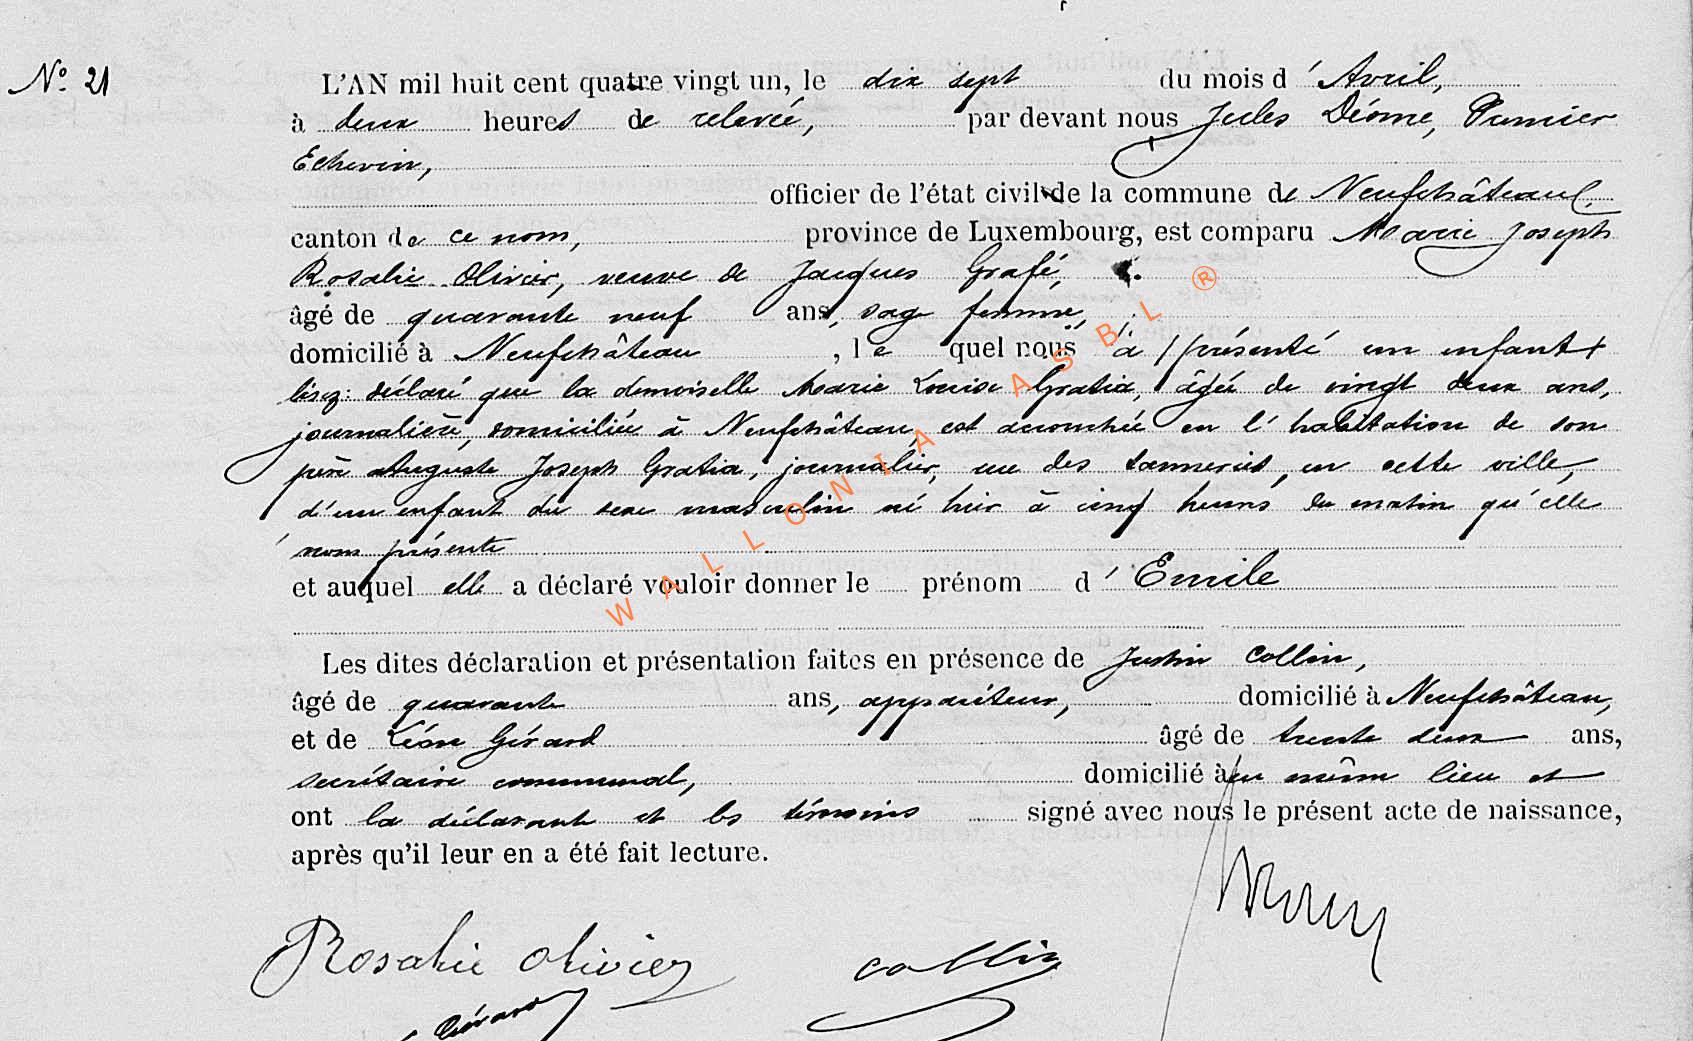 N° 21
L'AN mil huit cent quatre vingt un, le dix sept du mois d'Avril,
à deux heures de relevée, par devant nous Jules Déome, Premier
Echevin,
officier de l'état civil de la commune de Neufchâteau,
canton de ce nom, province de Luxembourg, est comparu Marie Joseph
Rosalie Olivier, veuve de Jacques Grafé,
âgé de quarante neuf ans, sage femme,
domicilié à Neufchâteau, lequel nous a présenté un enfant
lisez: déclaré que la demoiselle Marie Louise Gratia, âgée de vingt deux ans,
journalière, domiciliée à Neufchâteau, est accouchée en l'habitation de son
père Auguste Joseph Gratia, journalier, rue des tanneries, en cette ville,
d'un enfant du sexe masculin né hier à cinq heures du matin qu'elle
nous présente
et auquel elle a déclaré vouloir donner le prénom d'Emile
Les dites déclaration et présentation faites en présence de Justin Collin,
âgé de quarante ans, appariteur, domicilié à Neufchâteau,
et de Léon Gérard âgé de trente deux ans,
secrétaire communal, domicilié au même lieu et
ont la déclarante et les témoins signé avec nous le présent acte de naissance,
après qu'il leur en a été fait lecture.
Rosalie Olivier
Collin
Gérard
WALLONIA ASBL ®